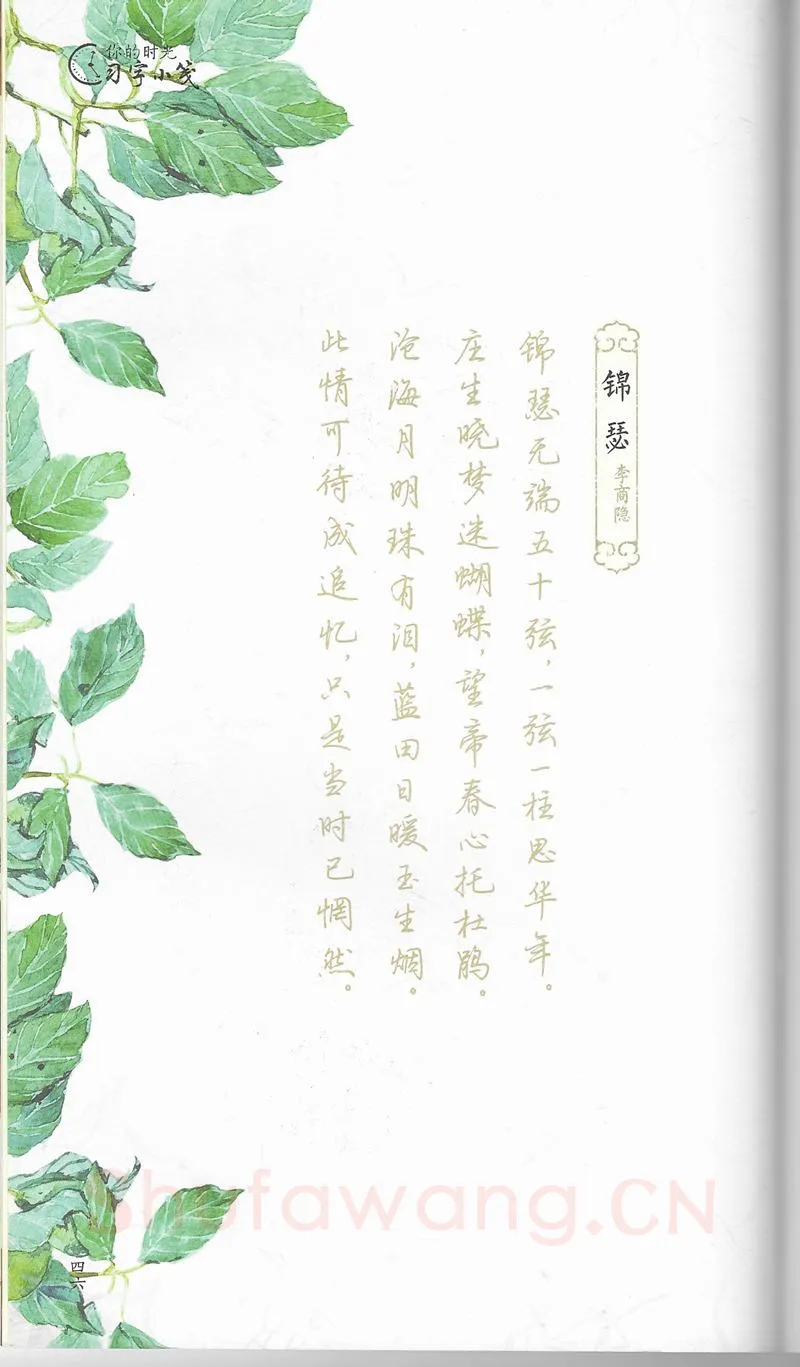 你的时光
习字小笺
锦瑟
李商隐
锦瑟无端五十弦，一弦一柱思华年。
庄生晓梦迷蝴蝶，望帝春心托杜鹃。
沧海月明珠有泪，蓝田日暖玉生烟。
此情可待成追忆，只是当时已惘然。
四六
Shufawang.CN